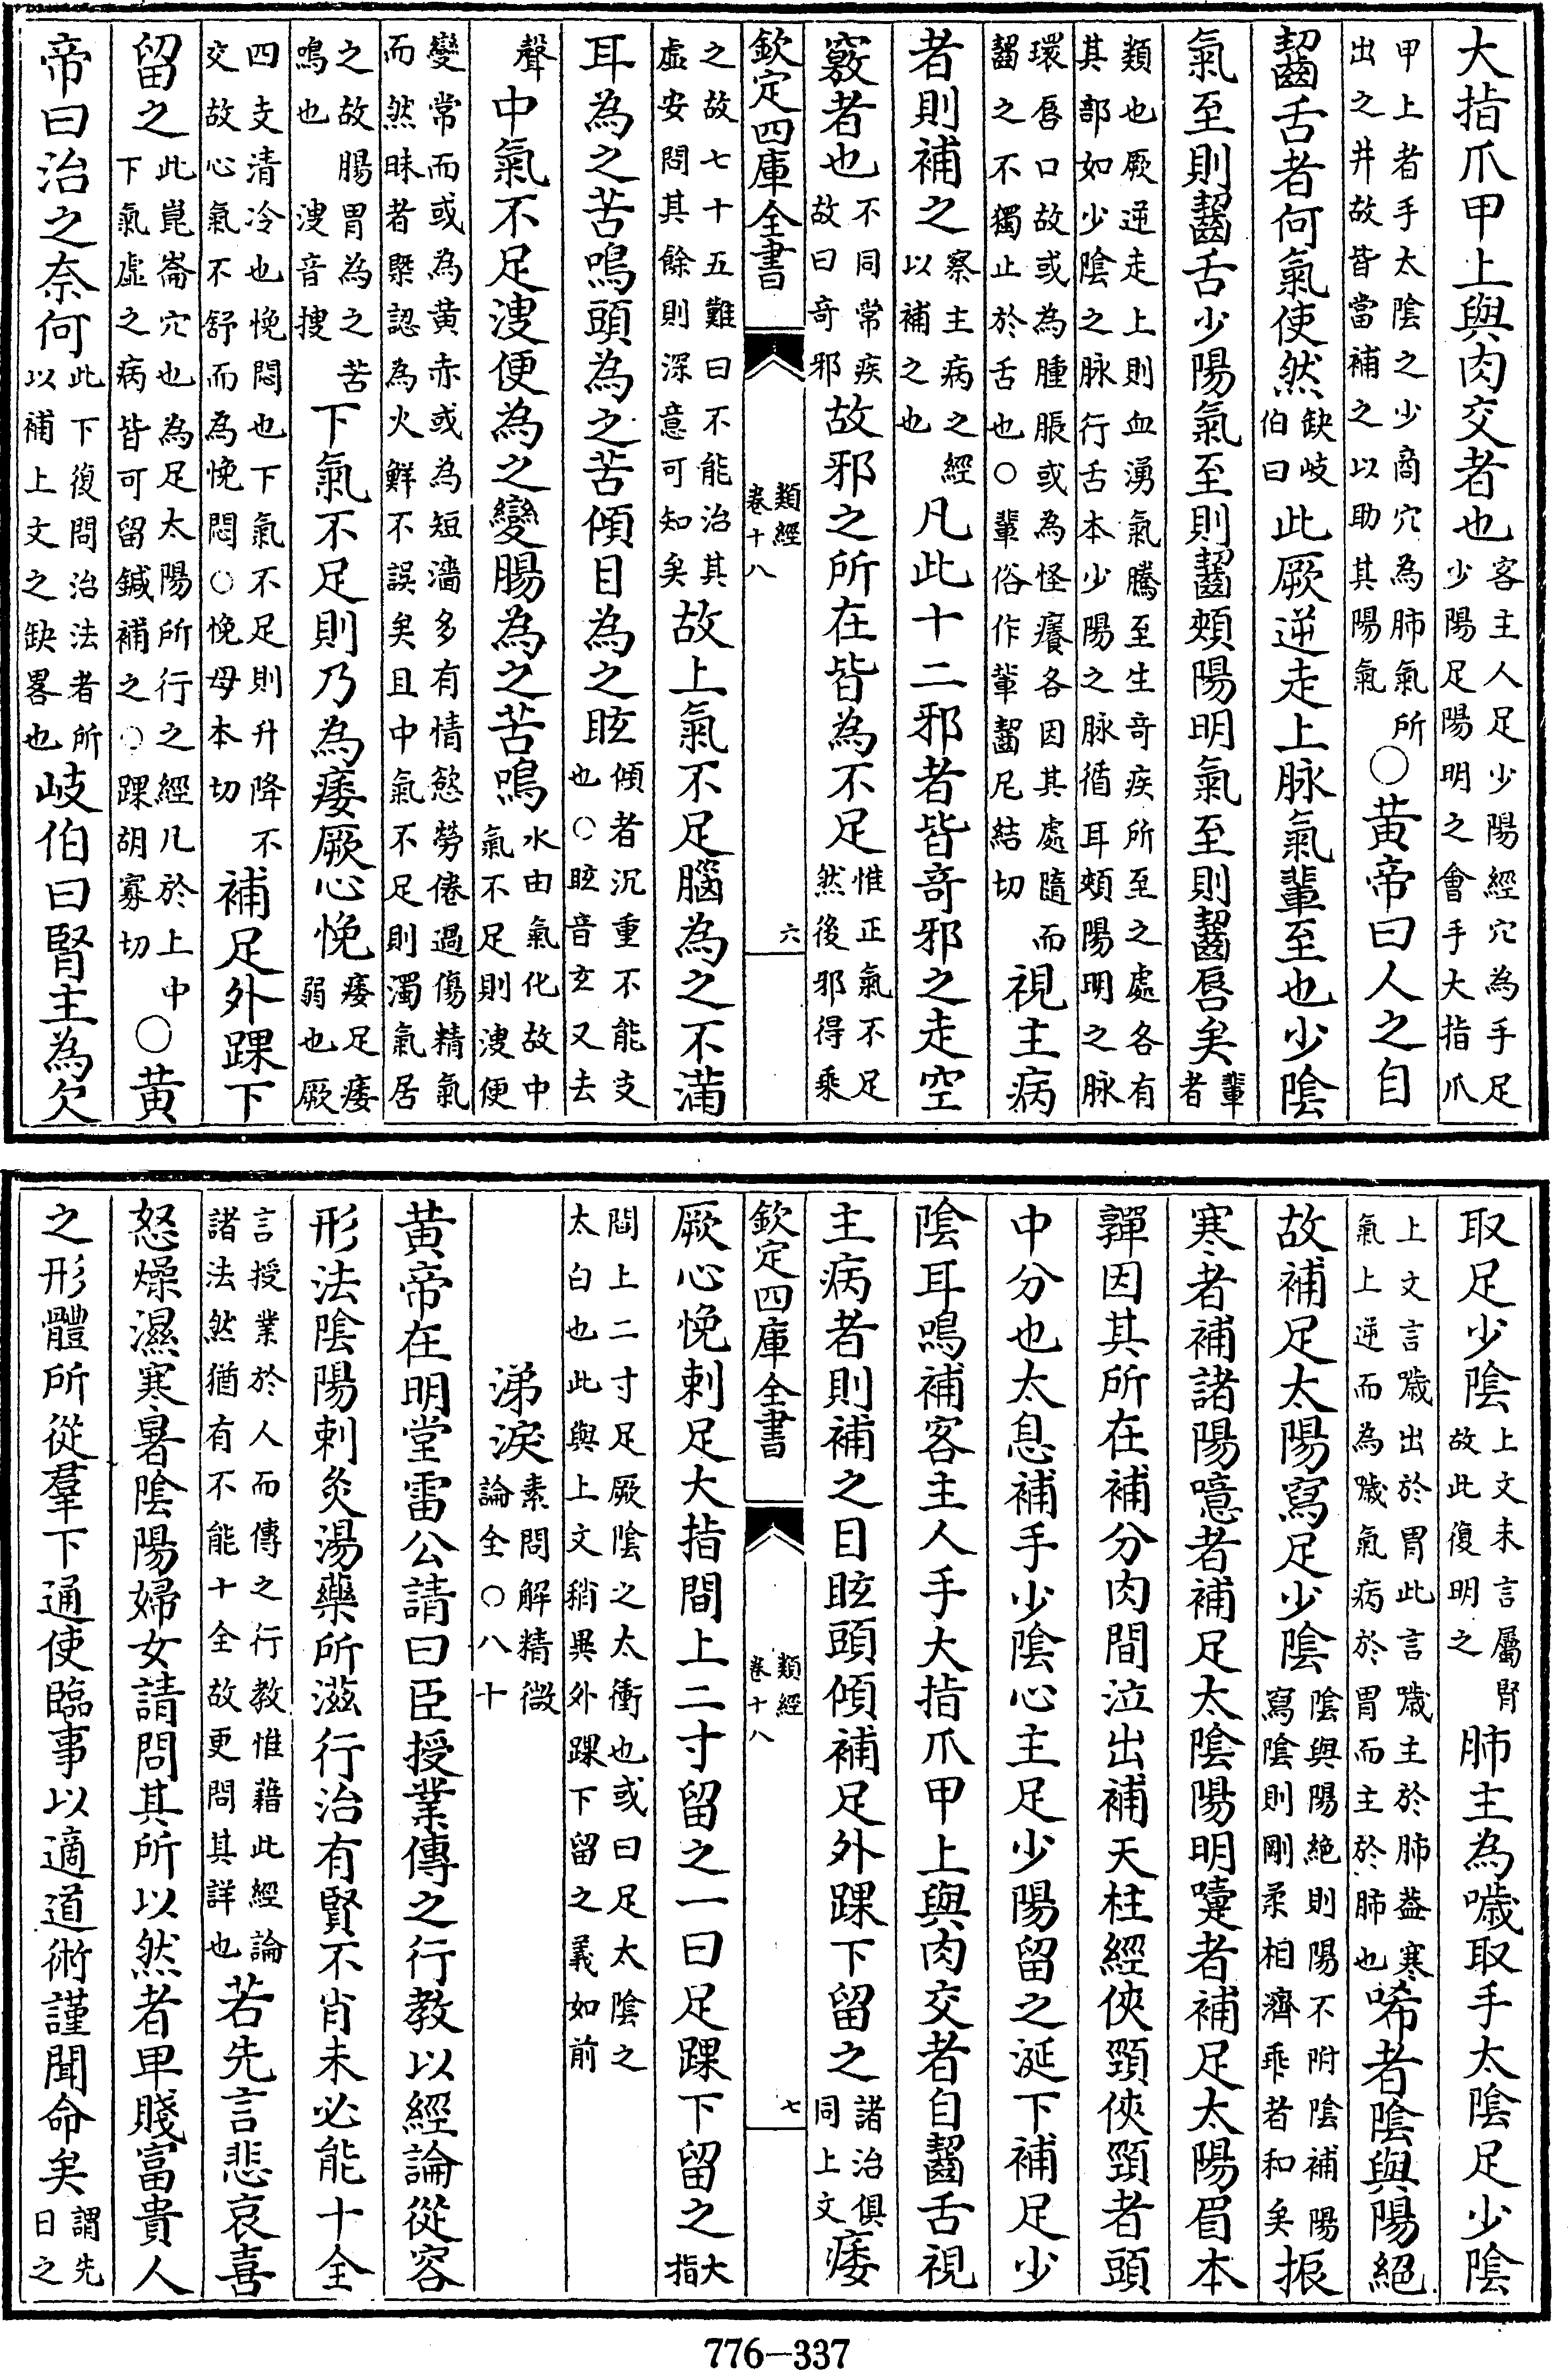 大指爪甲上與肉交者也客主人足少陽經穴為手足
少陽足陽明之會手大指爪
甲上者手太陰之少商穴為肺氣所
出之井故皆當補之以助其陽氣
○黃帝曰人之自
齧舌者何氣使然缺岐
伯曰
此厥逆走上脉氣輩至也少陰
氣至則齧舌少陽氣至則齧頰陽明氣至則齧唇矣輩
者
類也厥逆走上則血湧氣騰至生奇疾所至之處各有
其部如少陰之脉行舌本少陽之脉循耳頰陽明之脉
環唇口故或為腫脹或為怪癢各因其處隨而
齧之不獨止於舌也○輩俗作軰齧尼結切
視主病
者則補之察主病之經
以補之也
凡此十二邪者皆奇邪之走空
竅者也不同常疾
故曰奇邪
故邪之所在皆為不足惟正氣不足
然後邪得乘
欽定四庫全書
類經
卷十八
六
之故七十五難曰不能治其
虛安問其餘則深意可知矣
故上氣不足腦為之不滿
耳為之苦鳴頭為之苦傾目為之眩傾者沉重不能支
也○眩音玄又去
聲
中氣不足溲便為之變腸為之苦鳴水由氣化故中
氣不足則溲便
變常而或為黃赤或為短濇多有情慾勞倦過傷精氣
而然昧者槩認為火鮮不誤矣且中氣不足則濁氣居
之故腸胃為之苦
鳴也溲音搜
下氣不足則乃為痿厥心悗痿足痿
弱也厥
四支清冷也悗悶也下氣不足則升降不
交故心氣不舒而為悗悶○悗母本切
補足外踝下
留之此崑崙穴也為足太陽所行之經凡於上中
下氣虛之病皆可留鍼補之○踝胡寡切
○黃
帝曰治之奈何此下復問治法者所
以補上文之缺畧也
岐伯曰腎主為欠
取足少陰上文未言屬腎
故此復明之
肺主為噦取手太陰足少陰
上文言噦出於胃此言噦主於肺益寒
氣上逆而為噦氣病於胃而主於肺也
唏者陰與陽絕
故補足太陽寫足少陰陰與陽絕則陽不附陰補陽
寫陰則剛柔相濟乖者和矣
振
寒者補諸陽噫者補足太陰陽明嚏者補足太陽眉本
嚲因其所在補分肉間泣出補天柱經俠頸俠頸者頭
中分也太息補手少陰心主足少陽留之涎下補足少
陰耳鳴補客主人手大指爪甲上與肉交者自齧舌視
主病者則補之目眩頭傾補足外踝下留之諸治俱
同上文
痿
欽定四庫全書
類經
卷十八
七
厥心悗刺足大指間上二寸留之一曰足踝下留之大
指
間上二寸足厥陰之太衝也或曰足太陰之
太白也此與上文稍異外踝下留之義如前
涕淚素問解精微
論全○八十
黃帝在明堂雷公請曰臣授業傳之行教以經論從容
形法陰陽刺灸湯藥所滋行治有賢不肖未必能十全
言授業於人而傳之行教惟藉此經論
諸法然猶有不能十全故更問其詳也
若先言悲哀喜
怒燥濕寒暑陰陽婦女請問其所以然者卑賤富貴人
之形體所從羣下通使臨事以適道術謹聞命矣謂先
日之
776-337